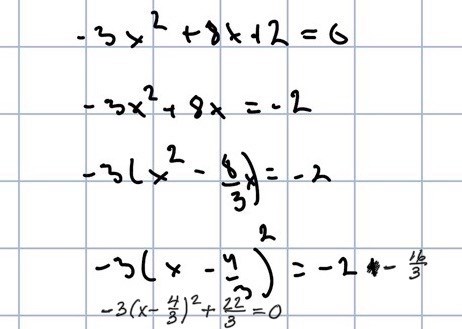 -3x² + 8x + 2 = 0
-3x² + 8x = -2
-3(x² - 8/3 x) = -2
-3(x - 4/3)² = -2 - 16/3
-3(x - 4/3)² + 22/3 = 0